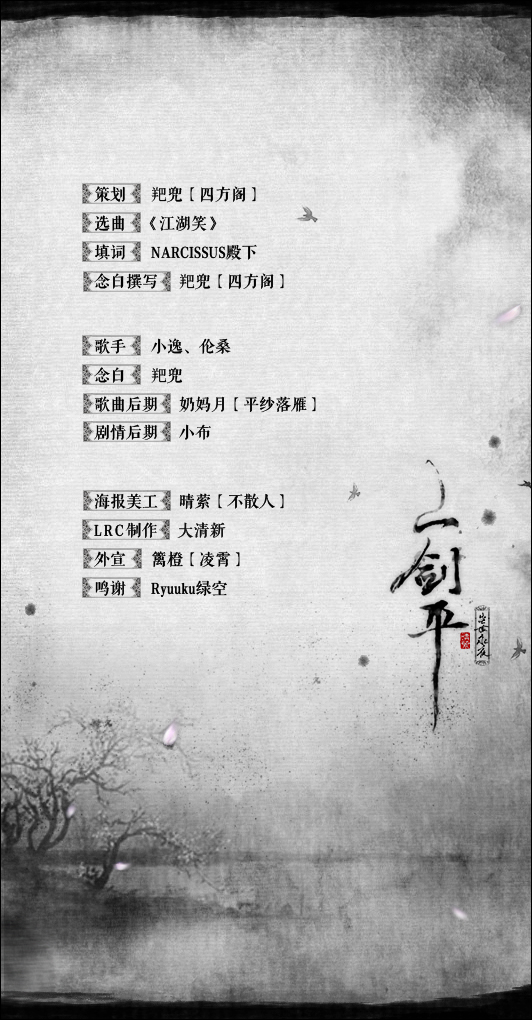 策划 羓兜［四方阁］
选曲 《江湖笑》
填词 NARCISSUS殿下
念白撰写 羓兜［四方阁］
歌手 小逸、伦桑
念白 羓兜
歌曲后期 奶妈月［平纱落雁］
剧情后期 小布
海报美工 晴萦［不散人］
LRC制作 大清新
外宣 篱橙［凌霄］
鸣谢 Ryuuku绿空
一剑平